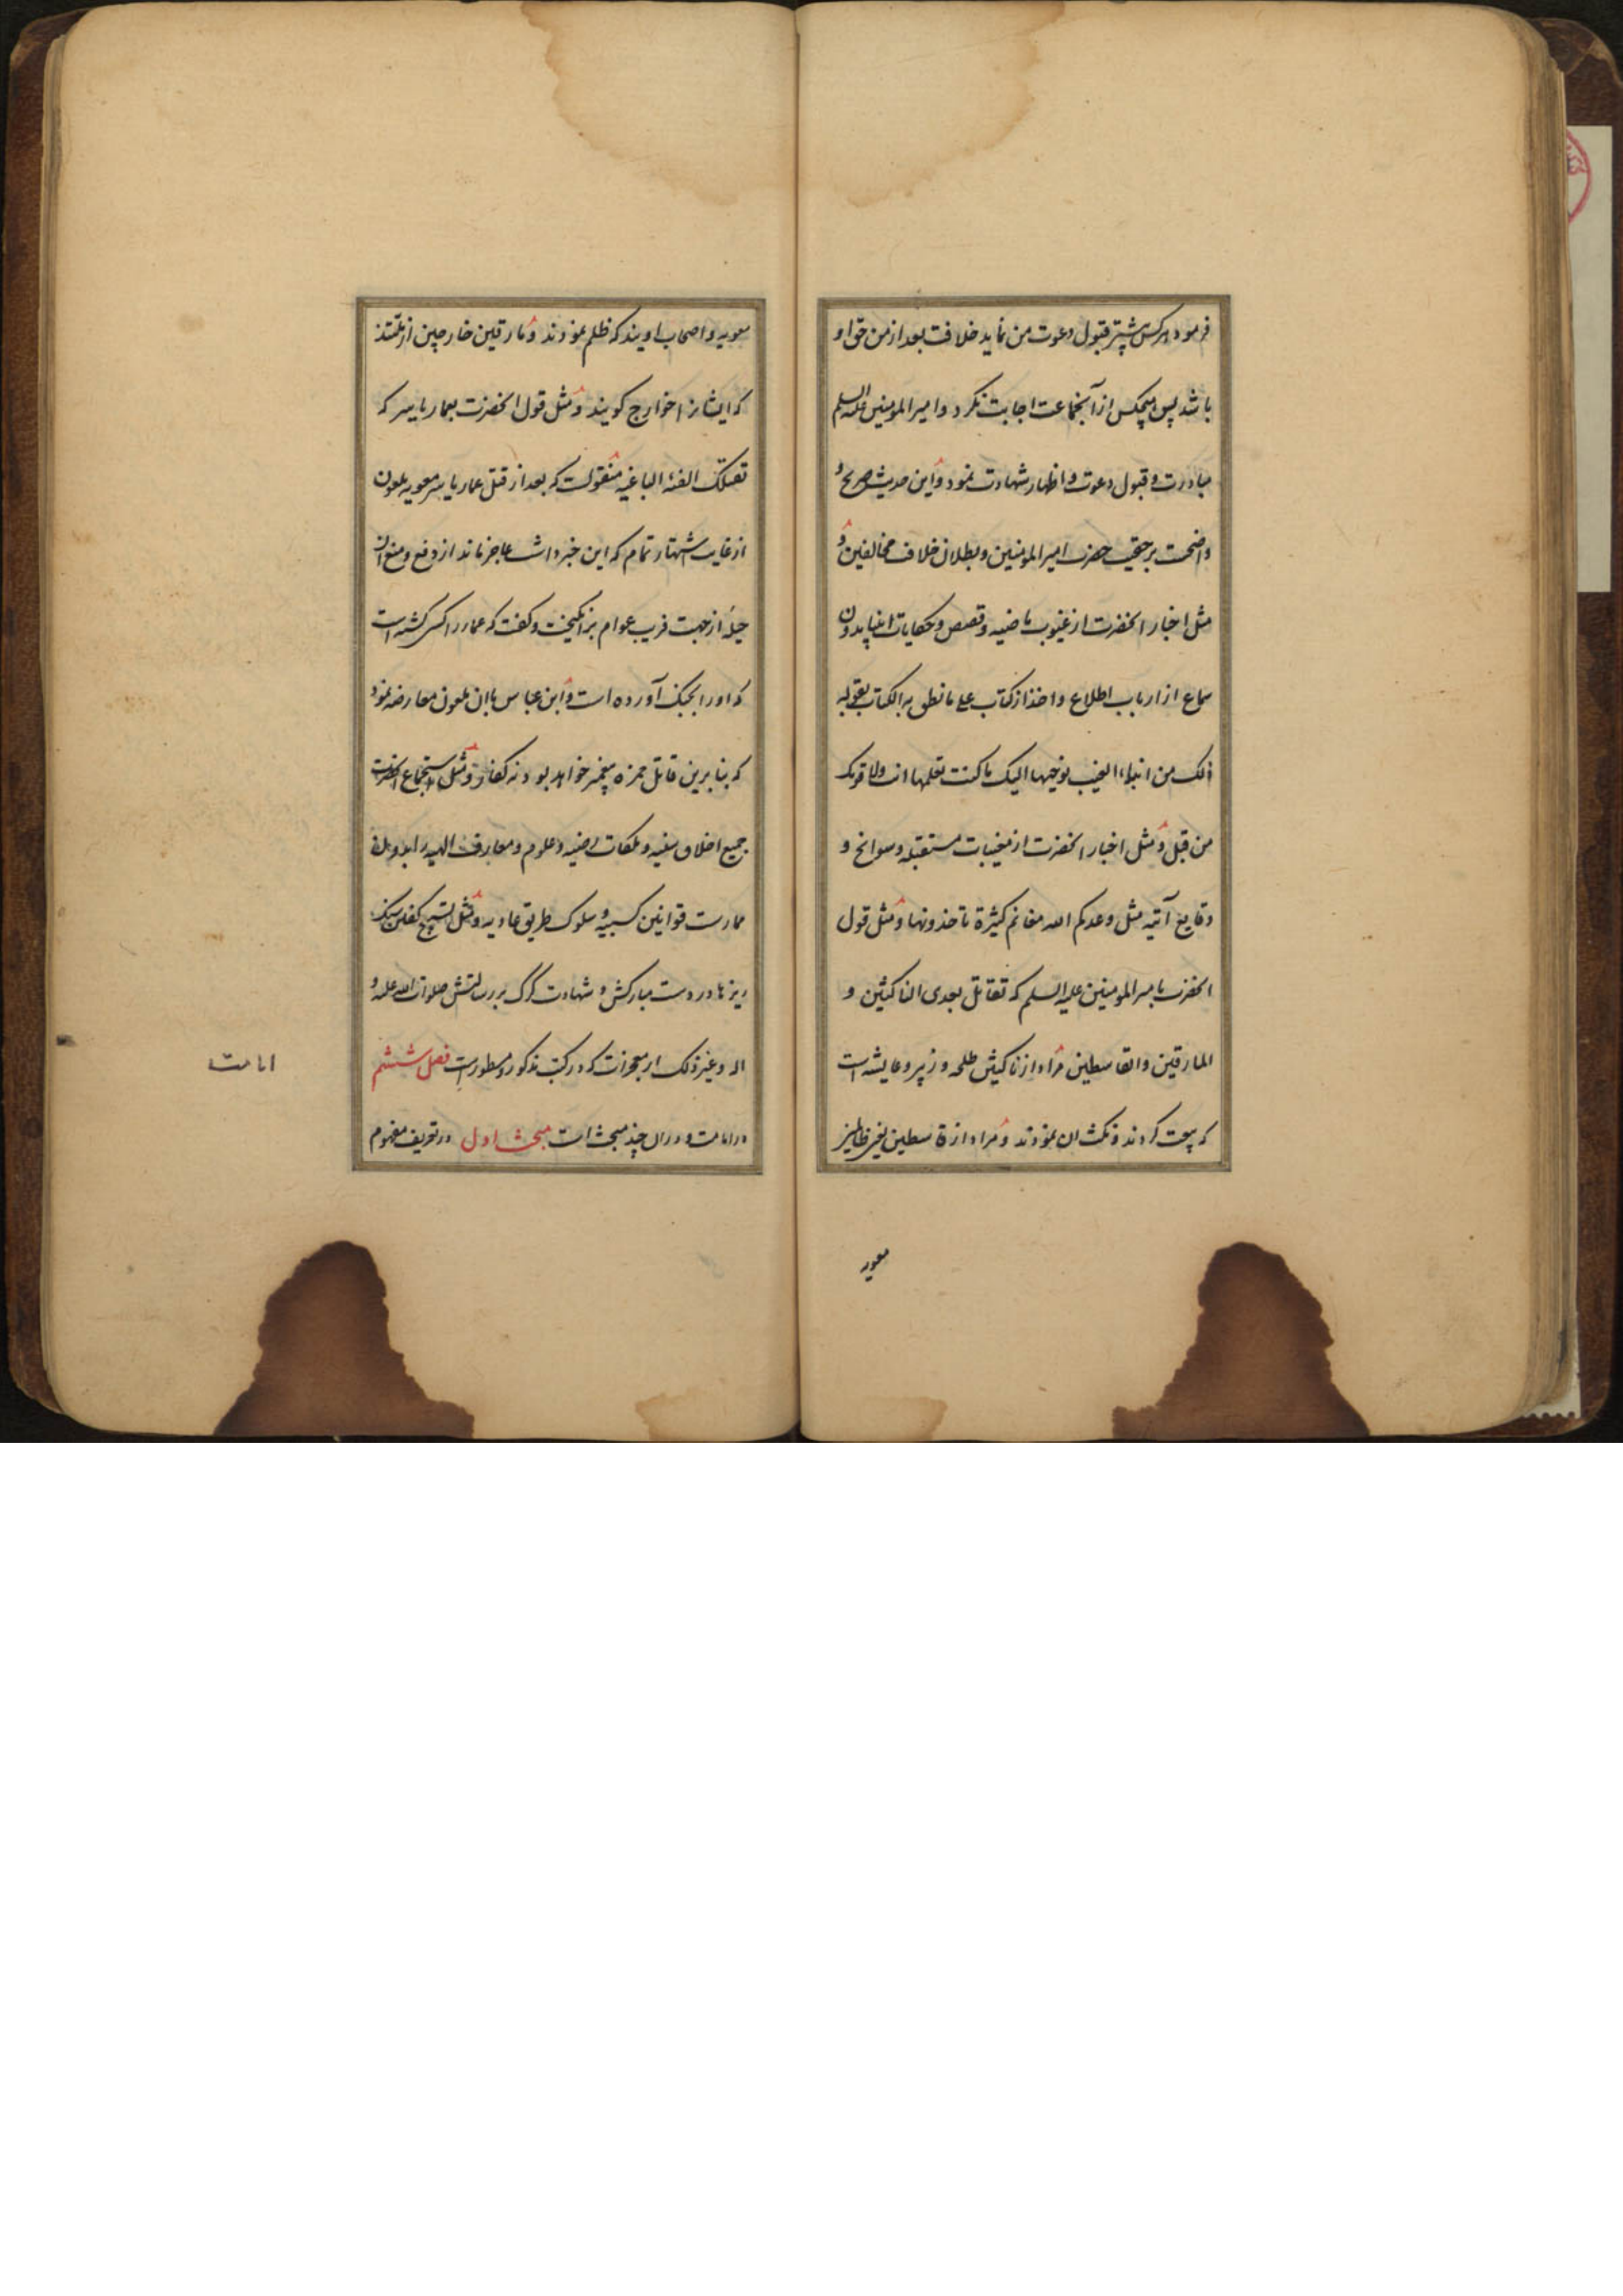 فرمود هر کس پیشتر قبول دعوت من نماید خلافت بعد از من حق او
باشد پس هیچکس از آنجماعت اجابت نکرد و امیر المومنین علیه السلم
مبادرت و قبول دعوت و اظهار شهادت نمود و این حدیث صریح و
واضحست بر حقیت حضرت امیر المومنین و بطلان خلاف مخالفین و
مثل اخبار انحضرت از غیوب ماضیه و قصص و حکایات انبیا بدون
سماع از ارباب اطلاع و اخذ از کتاب علی ما نطق به الکتاب بقوله
ذلک من انباء الغیب نوحیها الیک ما کنت تعلمها انت ولا قومک
من قبل و مثل اخبار انحضرت از مغیبات مستقبله و سوانح و
وقایع آتیه مثل وعدکم الله مغانم کثیرة تاخذونها و مثل قول
انحضرت بامیر المومنین علیه السلم که تقاتل بعدی الناکثین و
المارقین والقاسطین مراد از ناکثین طلحه و زبیر و عایشه است
که بیعت کردند و نکث ان نمودند و مراد از قاسطین یعنی ظالمین
معویه
معویه و اصحاب اویند که ظلم نمودند و مارقین خارجین از ملتند
که ایشانرا خوارج کویند و مثل قول انحضرت بعمار یاسر که
تقتلک الفئه الباغیه منقولست که بعد از قتل عمار یاسر معویه ملعون
از غایت اشتهار تمام که این خبر داشت عاجز ماند از دفع و منع ان
حیلهٔ از جهت فریب عوام برانکیخت و کفت که عمار را کسی کشته است
که اورا بجنک آورده است و ابن عباس باان ملعون معارضه نمود
که بنابرین قاتل حمزه پیغمبر خواهد بود نه کفار و مثل استجماع انحضرت
جمیع اخلاق سنیه و ملکات رضیه و علوم و معارف الهیه را بدون
ممارست قوانین کسبیه و سلوک طریق عادیه و مثل تسبیح کفتن سنک
ریزها در دست مبارکش و شهادت کرک بر رسالتش صلوات الله علیه و
اله و غیر ذلک از معجزات که در کتب مذکور و مسطورست فصل ششم
در امامت و در ان چند مبحث است مبحث اول در تعریف مفهوم
امامت